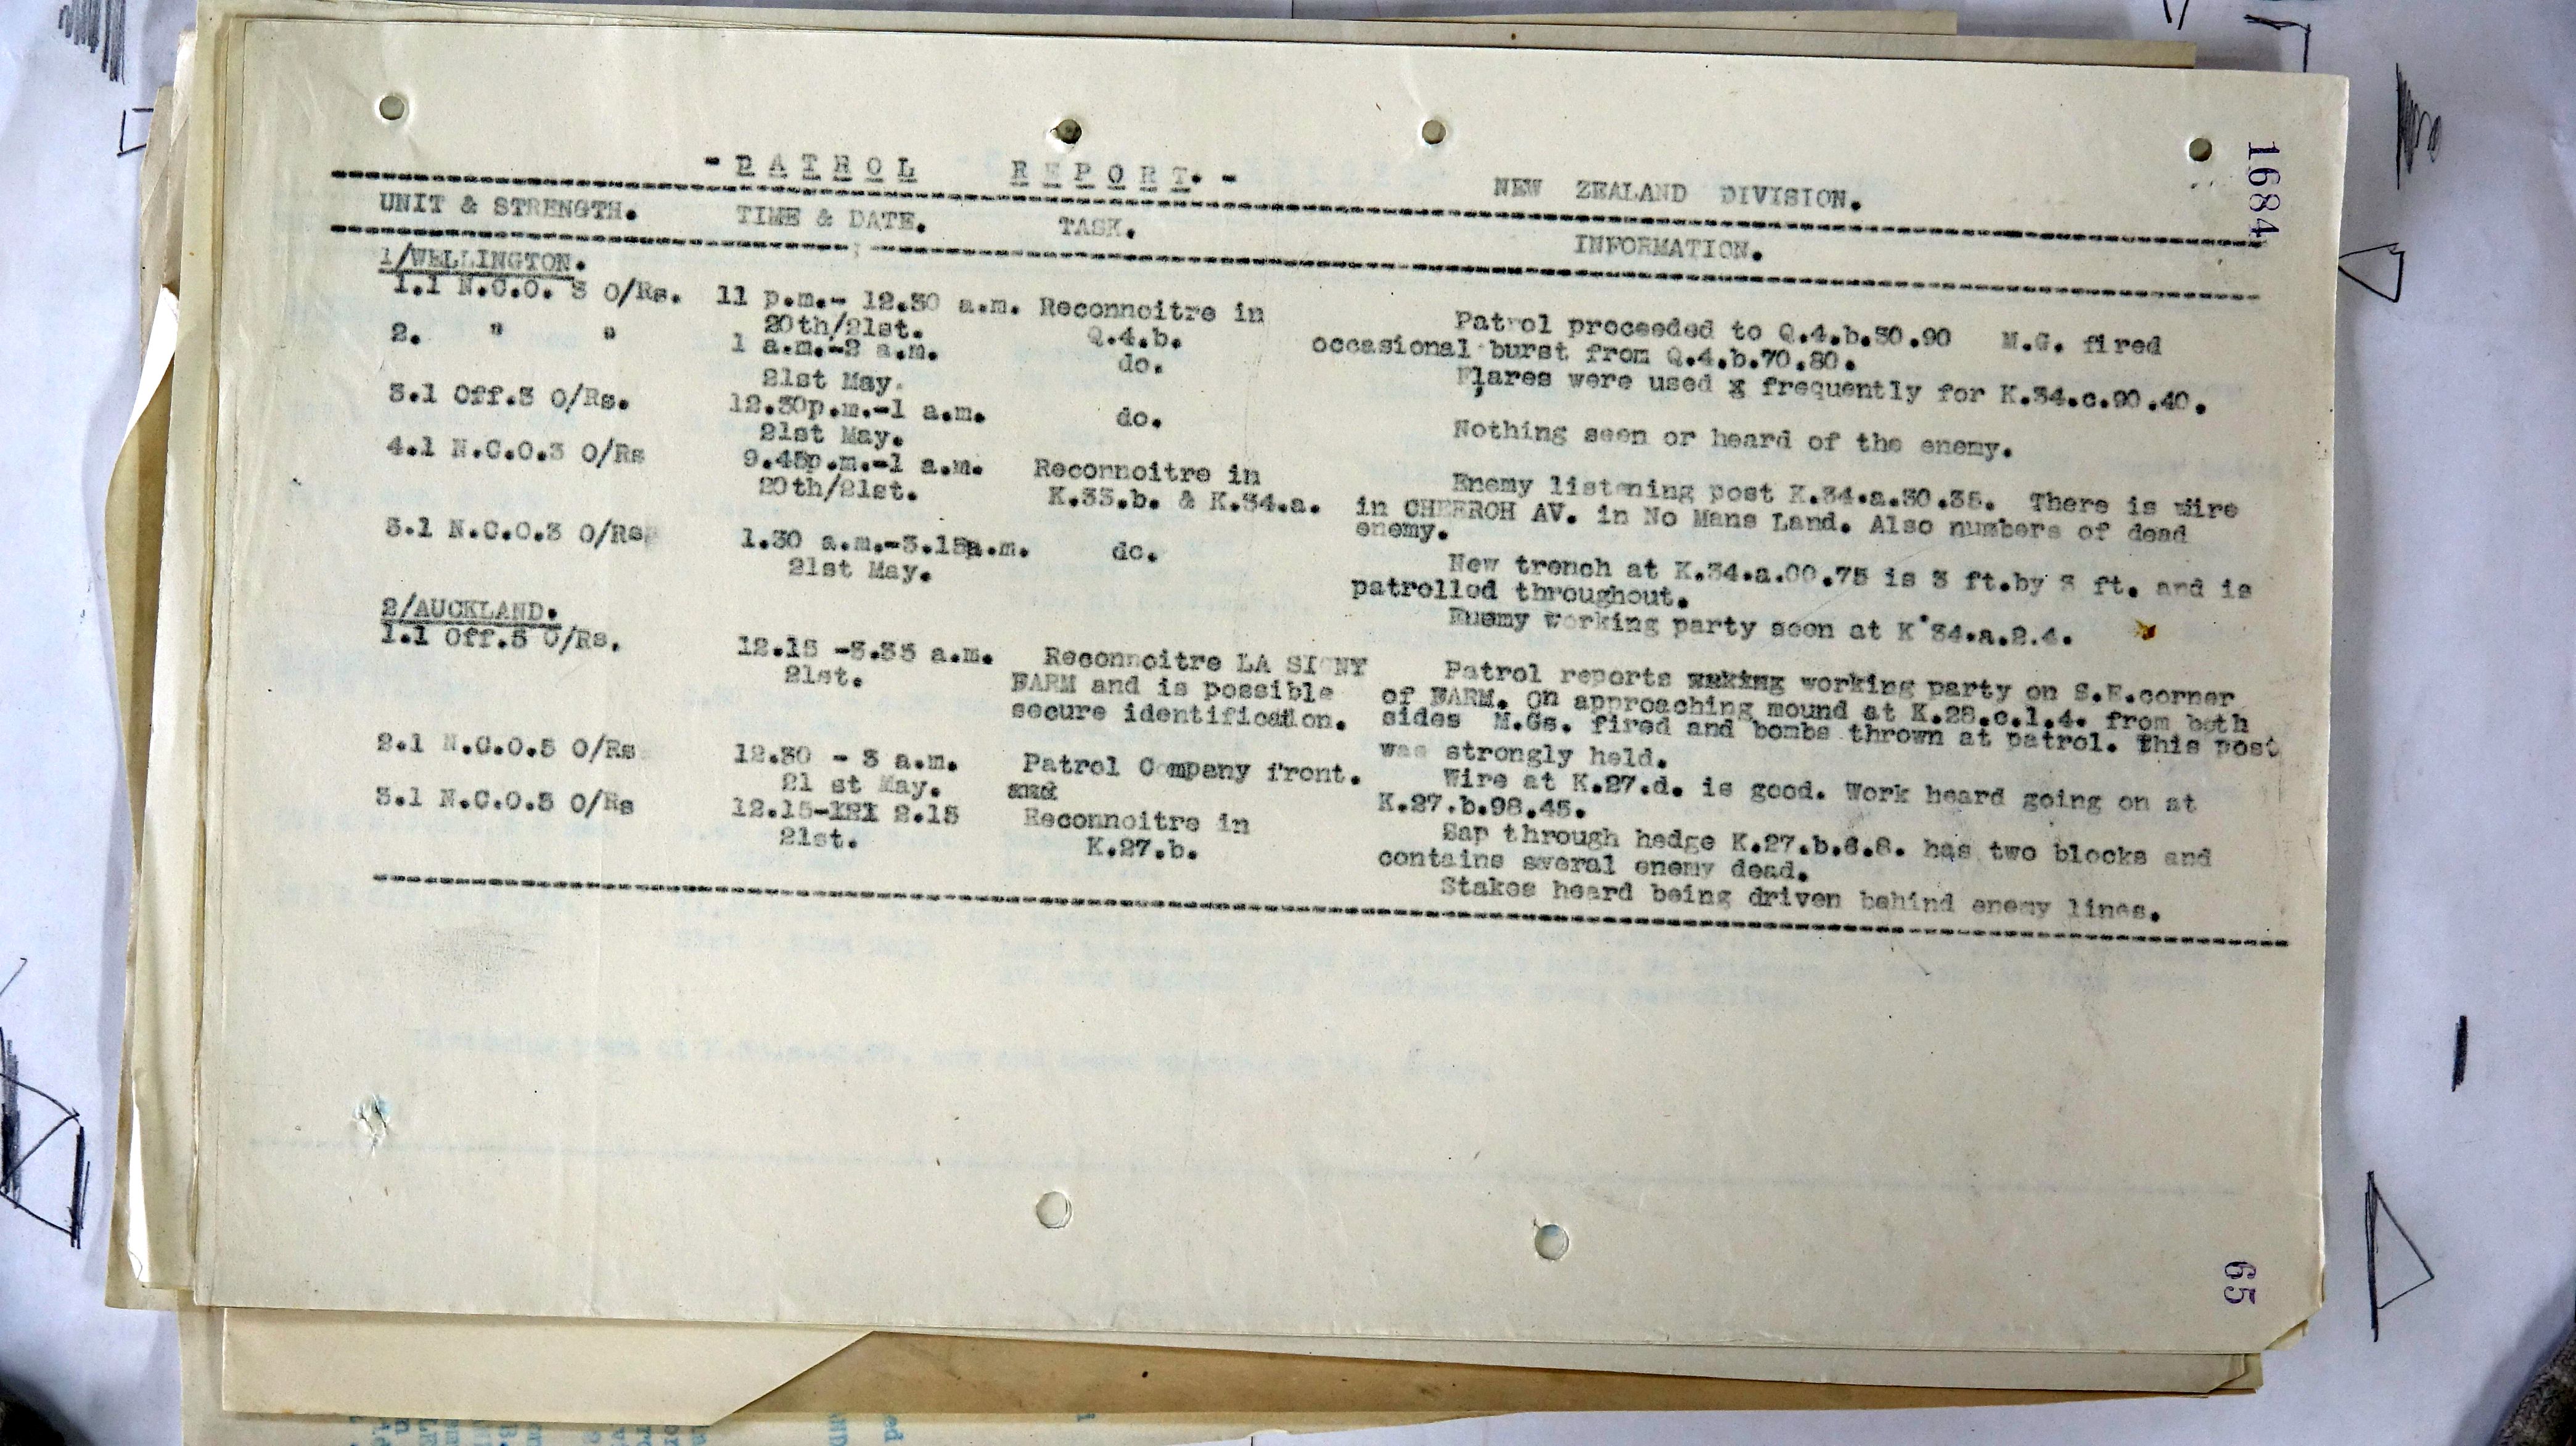 - P A T R O L R E P O R T. - NEW ZEALAND DIVISION. 1684
UNIT & STRENGTH. TIME & DATE. TASK. INFORMATION.
1/WELLINGTON.
1.1 N.C.O. 3 O/Rs. 11 p.m.- 12.30 a.m. Reconnoitre in Patrol proceeded to Q.4.b.50.90 M.G. fired
20th/21st. Q.4.b. occasional burst from Q.4.b.70.80.
2. " " 1 a.m.-3 a.m. do. Flares were used x frequently for K.34.c.90.40.
21st May.
3.1 Off.3 O/Rs. 12.30p.m.-1 a.m. do. Nothing seen or heard of the enemy.
21st May.
4.1 N.C.O.3 O/Rs 9.45p.m.-1 a.m. Reconnoitre in Enemy listening post K.34.a.30.35. There is wire
20th/21st. K.33.b. & K.34.a. in CHEEROH AV. in No Mans Land. Also numbers of dead
enemy.
5.1 N.C.O.3 O/Rs 1.30 a.m.-3.15a.m. do. New trench at K.34.a.00.75 is 3 ft.by 3 ft. and is
21st May. patrolled throughout.
Enemy working party seen at K.34.a.2.4.
2/AUCKLAND.
1.1 Off.5 O/Rs. 12.15 -3.35 a.m. Reconnoitre LA SIGNY Patrol reports working party on S.E.corner
21st. FARM and is possible of FARM. On approaching mound at K.28.c.1.4. from both
secure identification. sides M.Gs. fired and bombs thrown at patrol. This post
was strongly held.
2.1 N.C.O.5 O/Rs 12.30 - 3 a.m. Patrol Company front. Wire at K.27.d. is good. Work heard going on at
21 st May. and K.27.b.98.45.
3.1 N.C.O.5 O/Rs 12.15- 2.15 Reconnoitre in Sap through hedge K.27.b.6.8. has two blocks and
21st. K.27.b. contains several enemy dead.
Stakes heard being driven behind enemy lines.
65